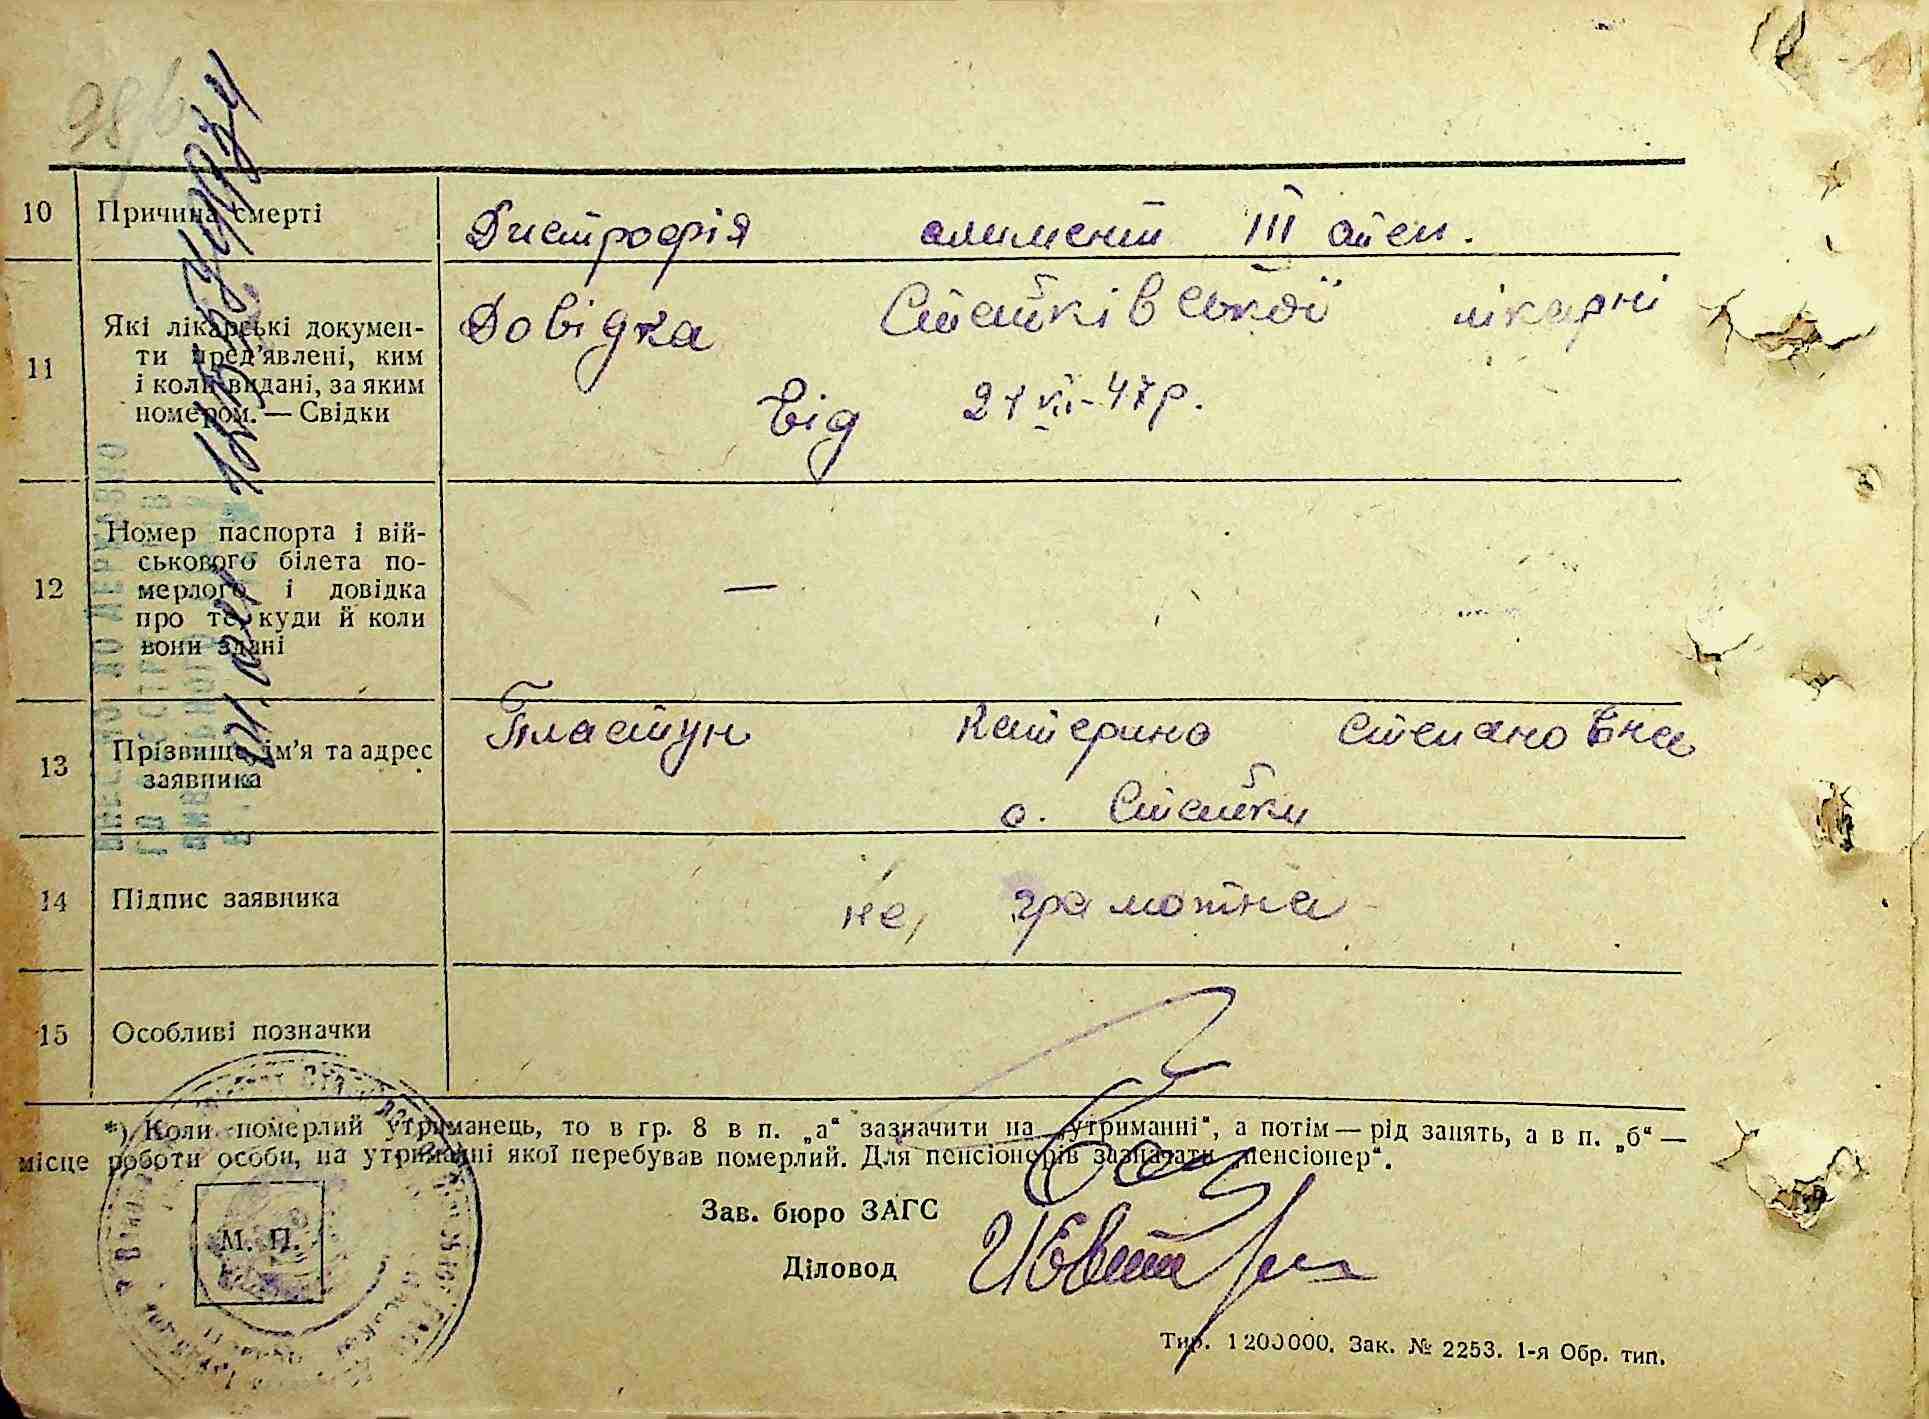 10 Причина смерті
Дистрофія алимент III степ.
11 Які лікарські докумен-
ти пред’явлені, ким
і коли видані, за яким
номером. — Свідки
Довідка Стайківської лікарні
від 21 VII-47р.
12 Номер паспорта і вій-
ськового білета по-
мерлого і довідка
про те куди й коли
вони здані
—
13 Прізвище, ім’я та адрес
заявника
Пластун Катерина Степановна
с. Стайки
14 Підпис заявника
не грамотна
15 Особливі позначки
*) Коли померлий утриманець, то в гр. 8 в п. „а“ зазначити на „утриманні“, а потім — рід занять, а в п. „б“ —
місце роботи особи, на утриманні якої перебував померлий. Для пенсіонерів зазначати „пенсіонер“.
Зав. бюро ЗАГС
М. П.
Діловод
Тир. 1200000. Зак. № 2253. 1-я Обр. тип.